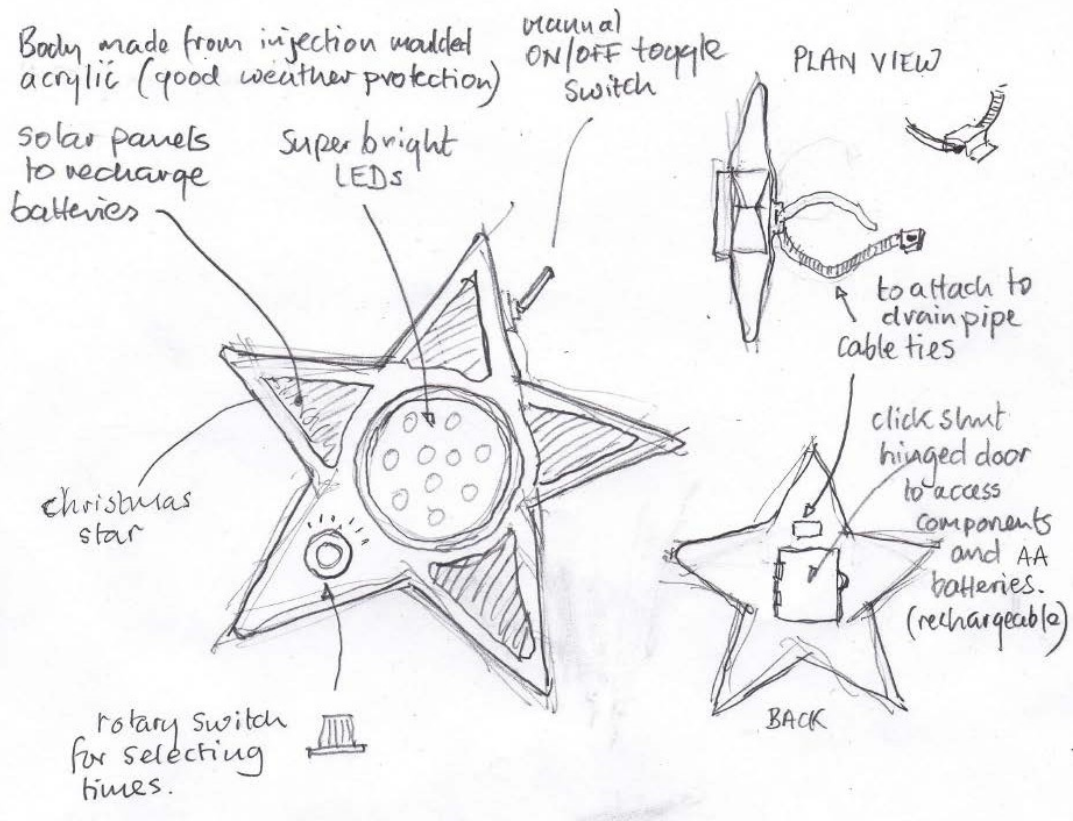 Body made from injection moulded
acrylic (good weather protection)
manual
ON/OFF toggle
switch
PLAN VIEW
solar panels
to recharge
batteries
Super bright
LEDs
to attach to
drainpipe
cable ties
christmas
star
click shut
hinged door
to access
components
and AA
batteries.
(rechargeable)
rotary switch
for selecting
times.
BACK